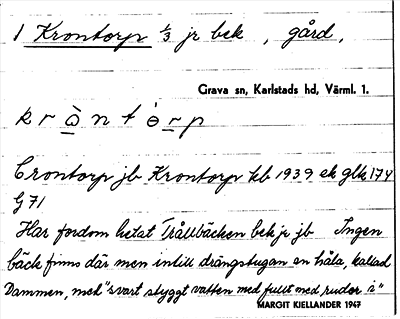 1 Krontorp 1/3 jr bek , gård,
Grava sn, Karlstads hd, Värml. l.
k r ò n t o r p
Crontorp jb Krontorp kb 1939 ek glk 174
G 71
Har fordom hetat Trållbäcken bek jr jb Ingen
bäck finns där men intill drängstugan en håla, kallad
Dammen, med "svart styggt vatten med fullt med rudor i"
MARGIT KJELLANDER 1947